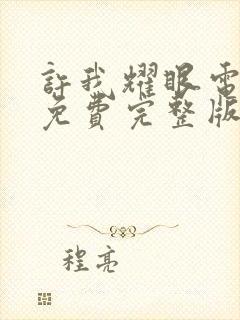 許我耀眼電
免費完整版
程亮